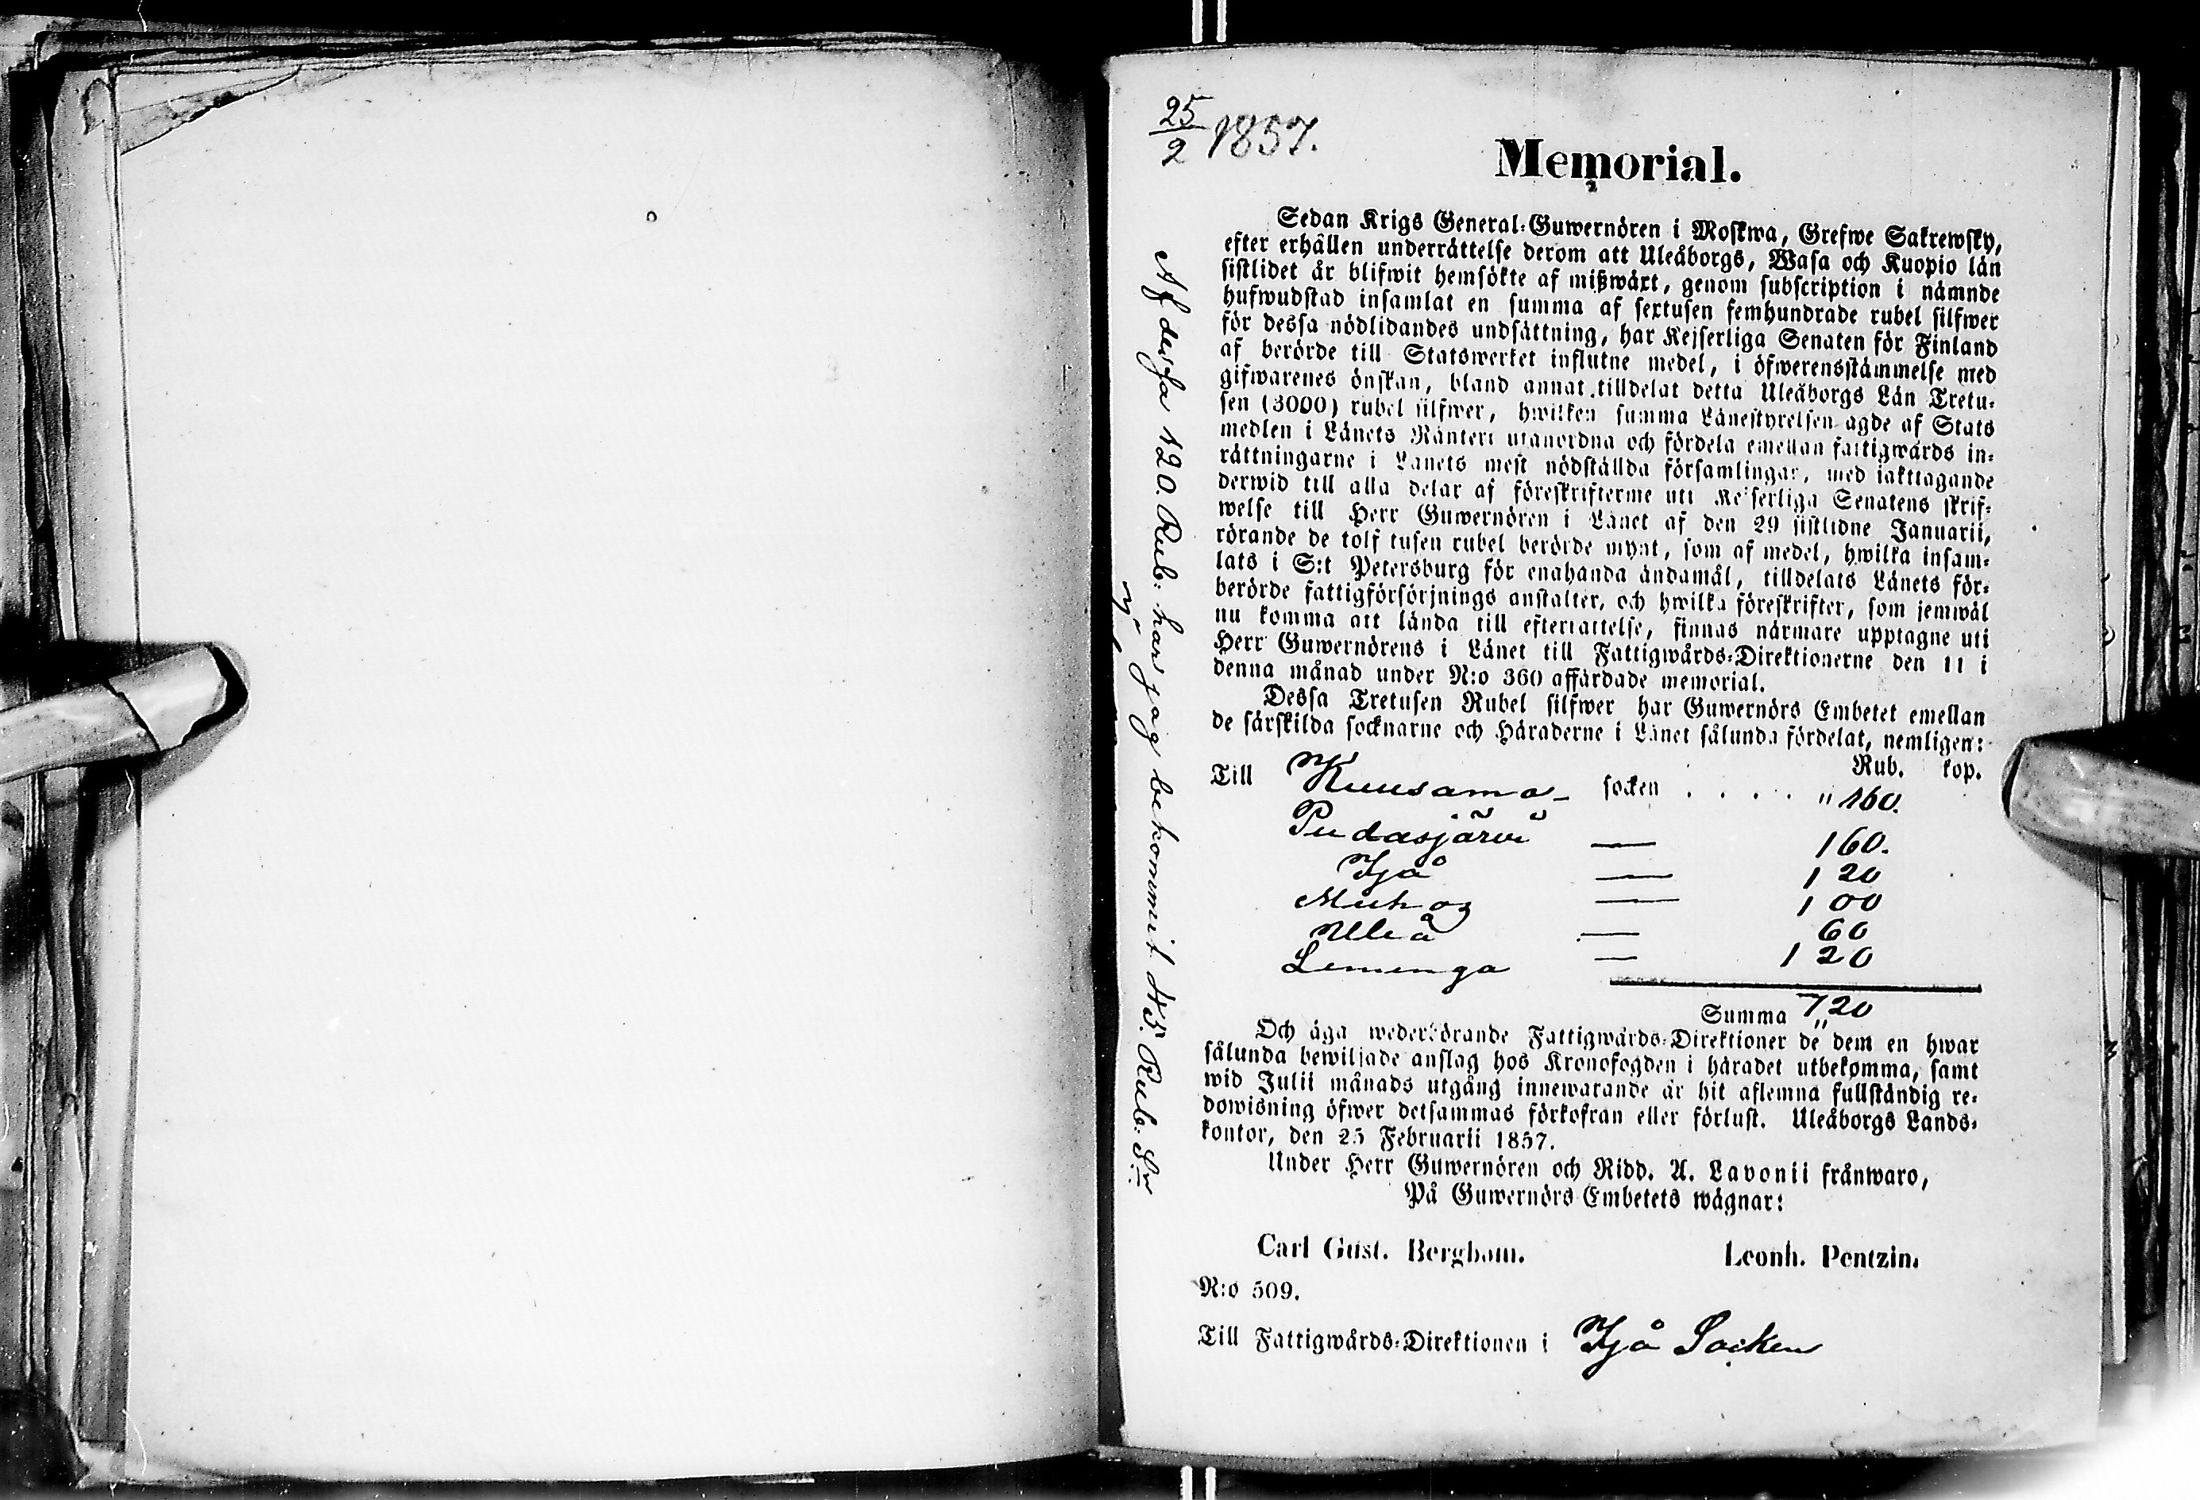 25/2 1857.
Memorial.
Sedan Krigs General-Guwernören i Moskwa, Grefwe Sakrewsky,
efter erhållen underrättelse derom att Uleåborgs, Wasa och Kuopio län
sistlidet år blifwit hemsökte af mißwäxt, genom subscription i nämnde
hufwudstad insamlat en summa af sextusen femhundrade rubel silfwer
för dessa nödlidandes undsättning, har Kejserliga Senaten för Finland
af berörde till Statswerket influtne medel, i öfwerensstämmelse med
gifwarenes önskan, bland annat tilldelat detta Uleåborgs Län Tretu-
sen (3000) rubel silfwer, hwilken summa Länestyrelsen ägde af Stats
medlen i Länets Ränteri utanordna och fördela emellan fattigwårds in-
rättningarne i Länets mest nödställda församlingar, med iakttagande
derwid till alla delar af föreskrifterme uti Kejserliga Senatens skrif-
welse till Herr Guwernören i Länet af den 29 sistlidne Januarii,
rörande de tolf tusen rubel berörde mynt, som af medel, hwilka insam-
lats i S:t Petersburg för enahanda ändamål, tilldelats Länets för-
berörde fattigförsörjnings anstalter, och hwilka föreskrifter, som jemwäl
nu komma att lända till efterrättelse, finnas närmare upptagne uti
Herr Guwernörens i Länet till Fattigwårds-Direktionerne den 11 i
denna månad under N:o 360 affärdade memorial.
Dessa Tretusen Rubel silfwer har Guwernörs Embetet emellan
de särskilda socknarne och Häraderne i Länet sålunda fördelat, nemligen:
Rub. kop.
Till Kuusamo socken . . . . " 160.
Pudasjärvi — 160.
Ijå — 120
Muhos — 100
Uleå — 60
Limingo — 120
Summa 720
Och äga wederbörande Fattigwårds-Direktioner de dem en hwar
sålunda bewiljade anslag hos Kronofogden i häradet utbekomma, samt
wid Julii månads utgång innewarande år hit aflemna fullständig re-
dowisning öfwer detsammas förkofran eller förlust. Uleåborgs Lands-
kontor, den 25 Februarii 1857.
Under Herr Guwernören och Ridd. A. Lavonii frånwaro,
På Guwernörs Embetets wägnar:
Carl Gust. Bergbom. Leonh. Pentzin.
N:o 509.
Till Fattigwårds-Direktionen i Ijå Socken
Af dessa 120. Rub: har jag bekommit 45. Rub: Sr